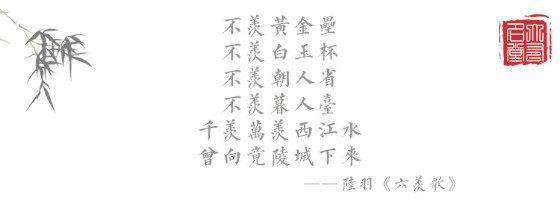 不羨黃金壘
不羨白玉杯
不羨朝人省
不羨暮人臺
千羨萬羨西江水
曾向竟陵城下來
——陸羽《六羨歌》